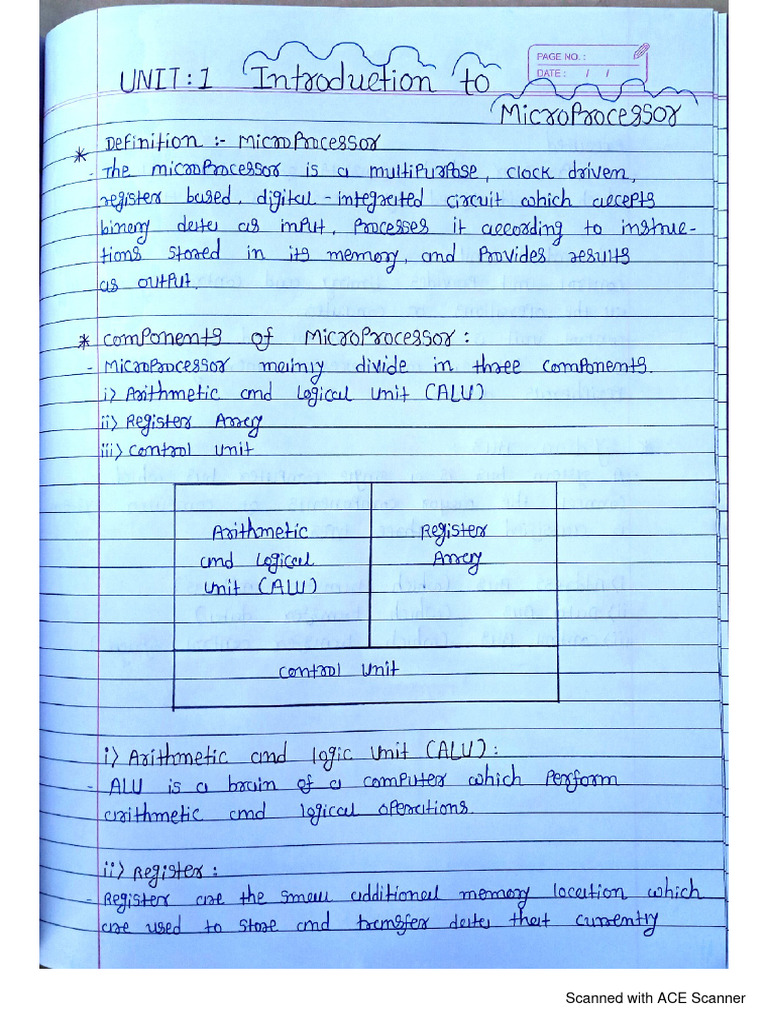 PAGE NO. :
DATE : / /
UNIT : 1 Introduction to
Microprocessor
* Definition :- Microprocessor
- The microprocessor is a multipurpose, clock driven,
register based, digital-integrated circuit which accepts
binary data as input, processes it according to instruc-
tions stored in its memory, and provides results
as output.
* Components of Microprocessor :
- Microprocessor mainly divide in three components.
i) Arithmetic and Logical Unit (ALU)
ii) Register Array
iii) Control Unit
Arithmetic
and Logical
Unit (ALU)
Register
Array
Control Unit
i) Arithmetic and Logic Unit (ALU) :
- ALU is a brain of a computer which perform
arithmetic and logical operations.
ii) Register :
- Register are the small additional memory location which
are used to store and transfer data that currently
Scanned with ACE Scanner